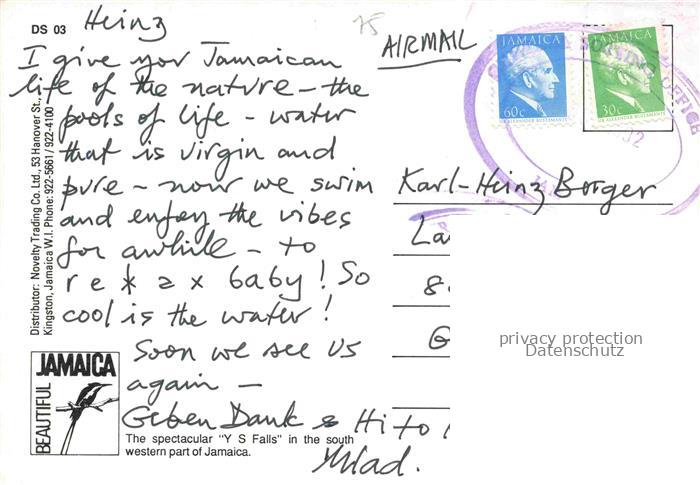 DS 03 Heinz
I give you Jamaican
life of the nature - the
pools of life - water
that is virgin and
pure - now we swim
and enjoy the vibes
for awhile - to
relax baby! So
cool is the water!
Soon we see us
again -
Geben Dank & Hi to
Mlad.
75
AIRMAIL
JAMAICA
60c
SIR ALEXANDER BUSTAMANTE
JAMAICA
30c
SIR ALEXANDER BUSTAMANTE
SORTING OFFICE
Karl-Heinz Borger
La
8
G
privacy protection
Datenschutz
Distributor: Novelty Trading Co. Ltd., 53 Hanover St.,
Kingston, Jamaica W.I. Phone: 922-5661 / 922-4100
BEAUTIFUL
JAMAICA
The spectacular "Y S Falls" in the south
western part of Jamaica.